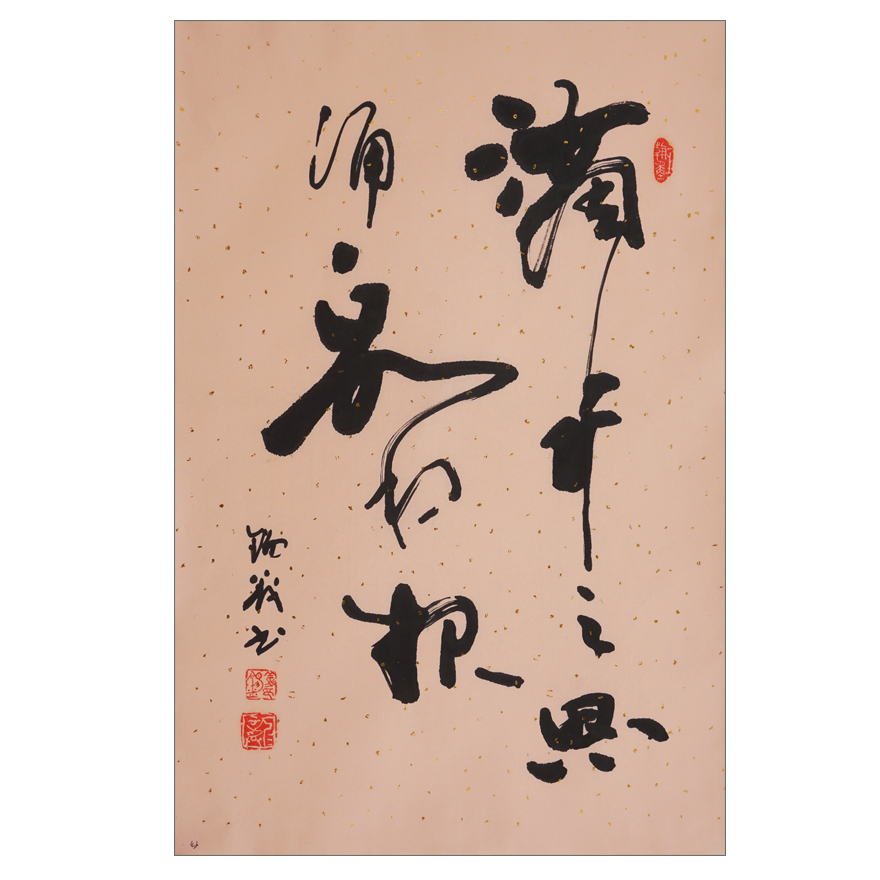 滴水之恩
涌泉相报